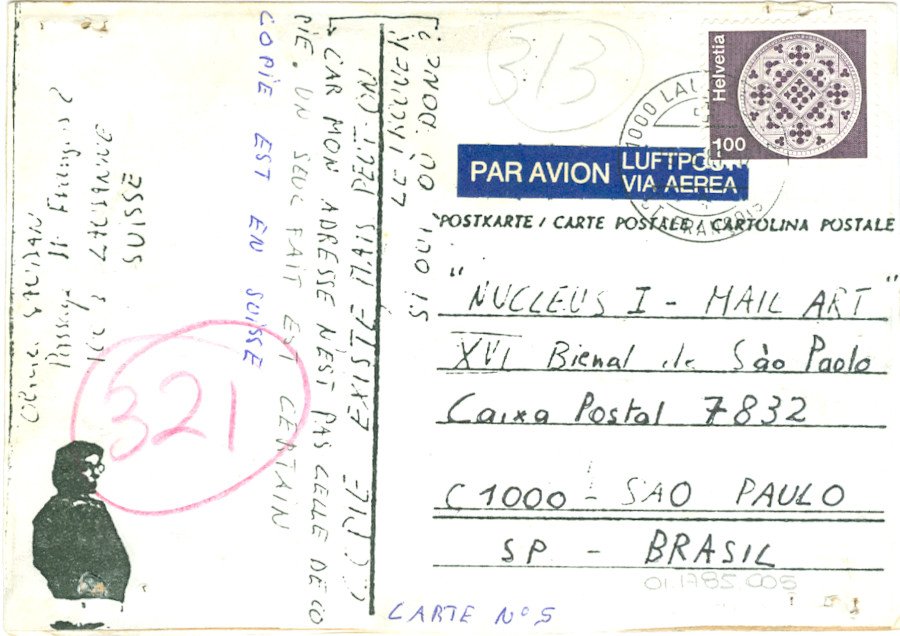 COPIE EXISTE MAIS PEUT ON
LE TROUVER
SI OUI, OÙ DONC?
CAR MON ADRESSE N'EST PAS CELLE DE CO
PIE. UN SEUL FAIT EST CERTAIN
COPIE EST EN SUISSE
Passage St François
LAUSANNE
SUISSE
321
313
Helvetia
100
1000 LAU
PAR AVION LUFTPOST
VIA AEREA
POSTKARTE / CARTE POSTALE / CARTOLINA POSTALE
"NUCLEUS I - MAIL ART"
XVI Bienal de São Paolo
Caixa Postal 7832
C1000 - SAO PAULO
SP - BRASIL
01.1785.005
CARTE N° 5